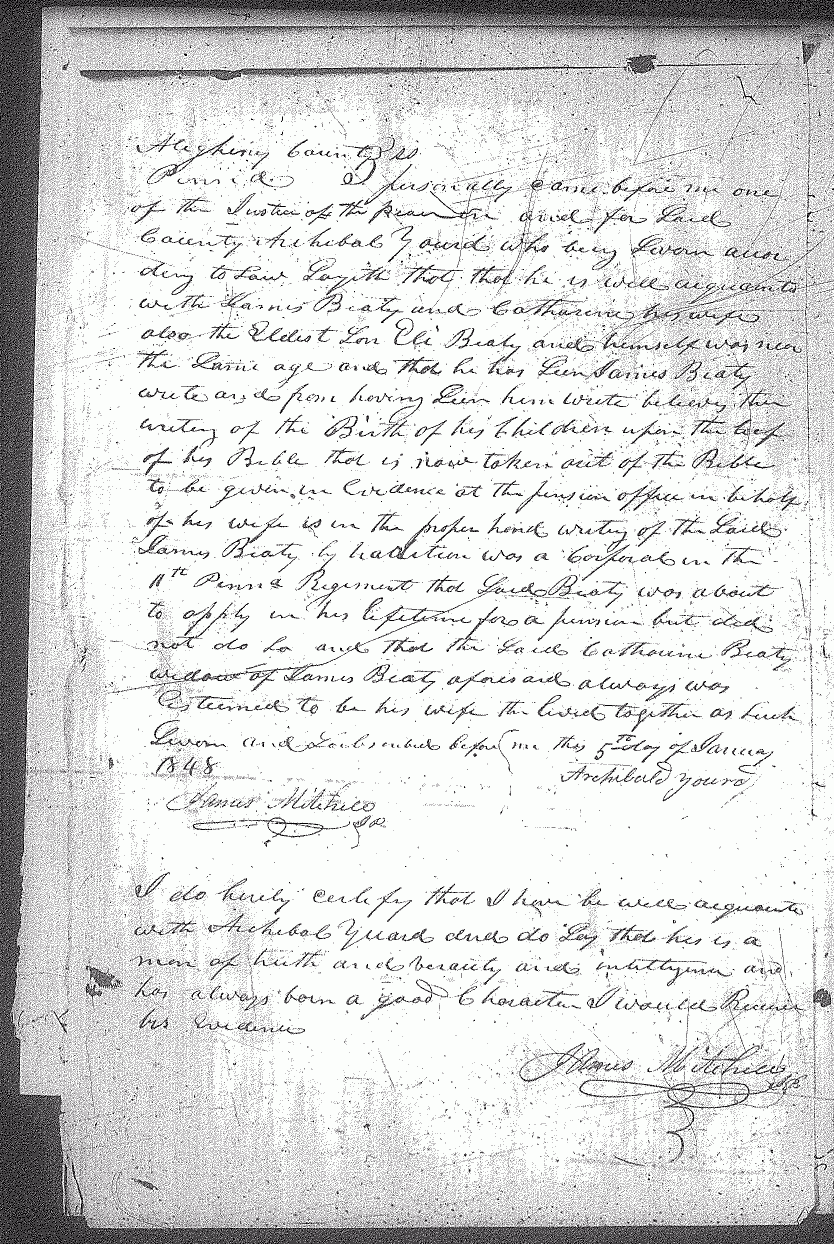 Alegheny County } SS
Penn'd personally came before me one
of the Justice of the peace in and for Said
County Archibal Yourd who being Sworn accor
ding to Law Sayith that that he is well acquainted
with James Beaty and Catharine his wife
also the Eldest Son Eli Beaty and himself was near
the Same age and that he has Seen James Beaty
write and from having Seen him write believes the
writing of the Birth of his Children upon the leaf
of his Bible that is now taken out of the Bible
to be given in Evidence at the pension office in behalf
of his wife is in the proper hand writing of the Said
James Beaty by tradition was a Corporal in the
11th Penn'a Regiment that Said Beaty was about
to apply in his lifetime for a pension but did
not do So and that the Said Catharine Beaty
widow of James Beaty aforesaid always was
Esteemed to be his wife the lived together as Such
Sworn and Subscribed before me this 5th day of January
1848 Archibald Yourd
James Mitchell
JP
I do herily certify that I have be well acquainte
with Archibal Yuard and do Say that his is a
man of truth and veraity and intillgence and
has always born a good Character I would Receive
his Evidence
James Mitchell JP